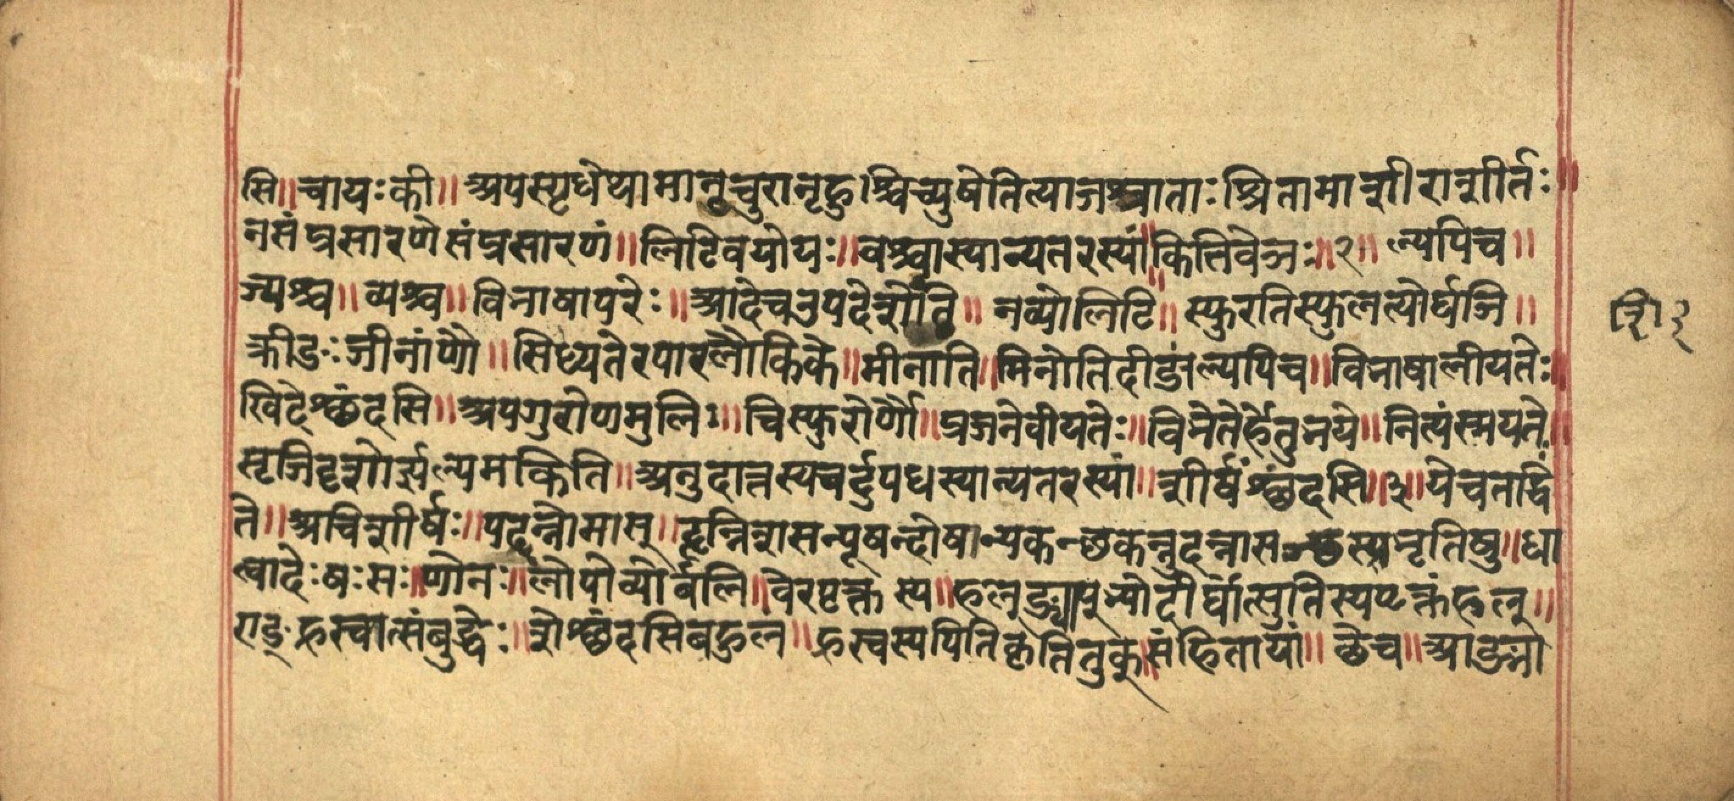 सि॥चायःकी॥अपस्पृधेथामानृचुरानृहुश्चिच्युषेतित्याजश्राताःश्रितामाशीराशीर्तः
नसंप्रसारणेसंप्रसारणं॥लिटिवयोयः॥वश्चास्यान्यतरस्यांकितिवेञः॥२॥ल्यपिच॥
ज्यश्च॥व्यश्च॥विभाषापरेः॥आदेचउपदेशेति॥नव्योलिटि॥स्फुरतिस्फुलत्योर्घञि॥
क्रीङःजीनांणौ॥सिध्यतेरपारलौकिके॥मीनाति॥मिनोतिदीङांल्यपिच॥विभाषालीयतेः
खिदेश्छंदसि॥अपगुरोणमुलि॥चिस्फुरोर्णौ॥प्रजनेवीयतेः॥विभेतेर्हेतुभये॥नित्यंस्मयते
सृजिदृशोर्झल्यमकिति॥अनुदात्तस्यचर्दुपधस्यान्यतरस्यां॥शीर्षंश्छंदसि॥३॥येचतद्धि
ते॥अचिशीर्षः॥पद्दन्नोमास्॥हृन्निशसन्यूषन्दोषान्यकन्छकन्नुदन्नासन्छस्प्रभृतिषु॥धा
त्वादेःषःसः॥णोनः॥लोपोव्योर्वलि॥वेरपृक्तस्य॥हल्ङ्याप्भ्योदीर्घात्सुतिस्यपृक्तंहल्॥
एङ्ह्रस्वात्संबुद्धेः॥शेश्छंदसिबहुल॥ह्रस्वस्यपितिकृतितुक्॥संहितायां॥छेच॥आङ्मा